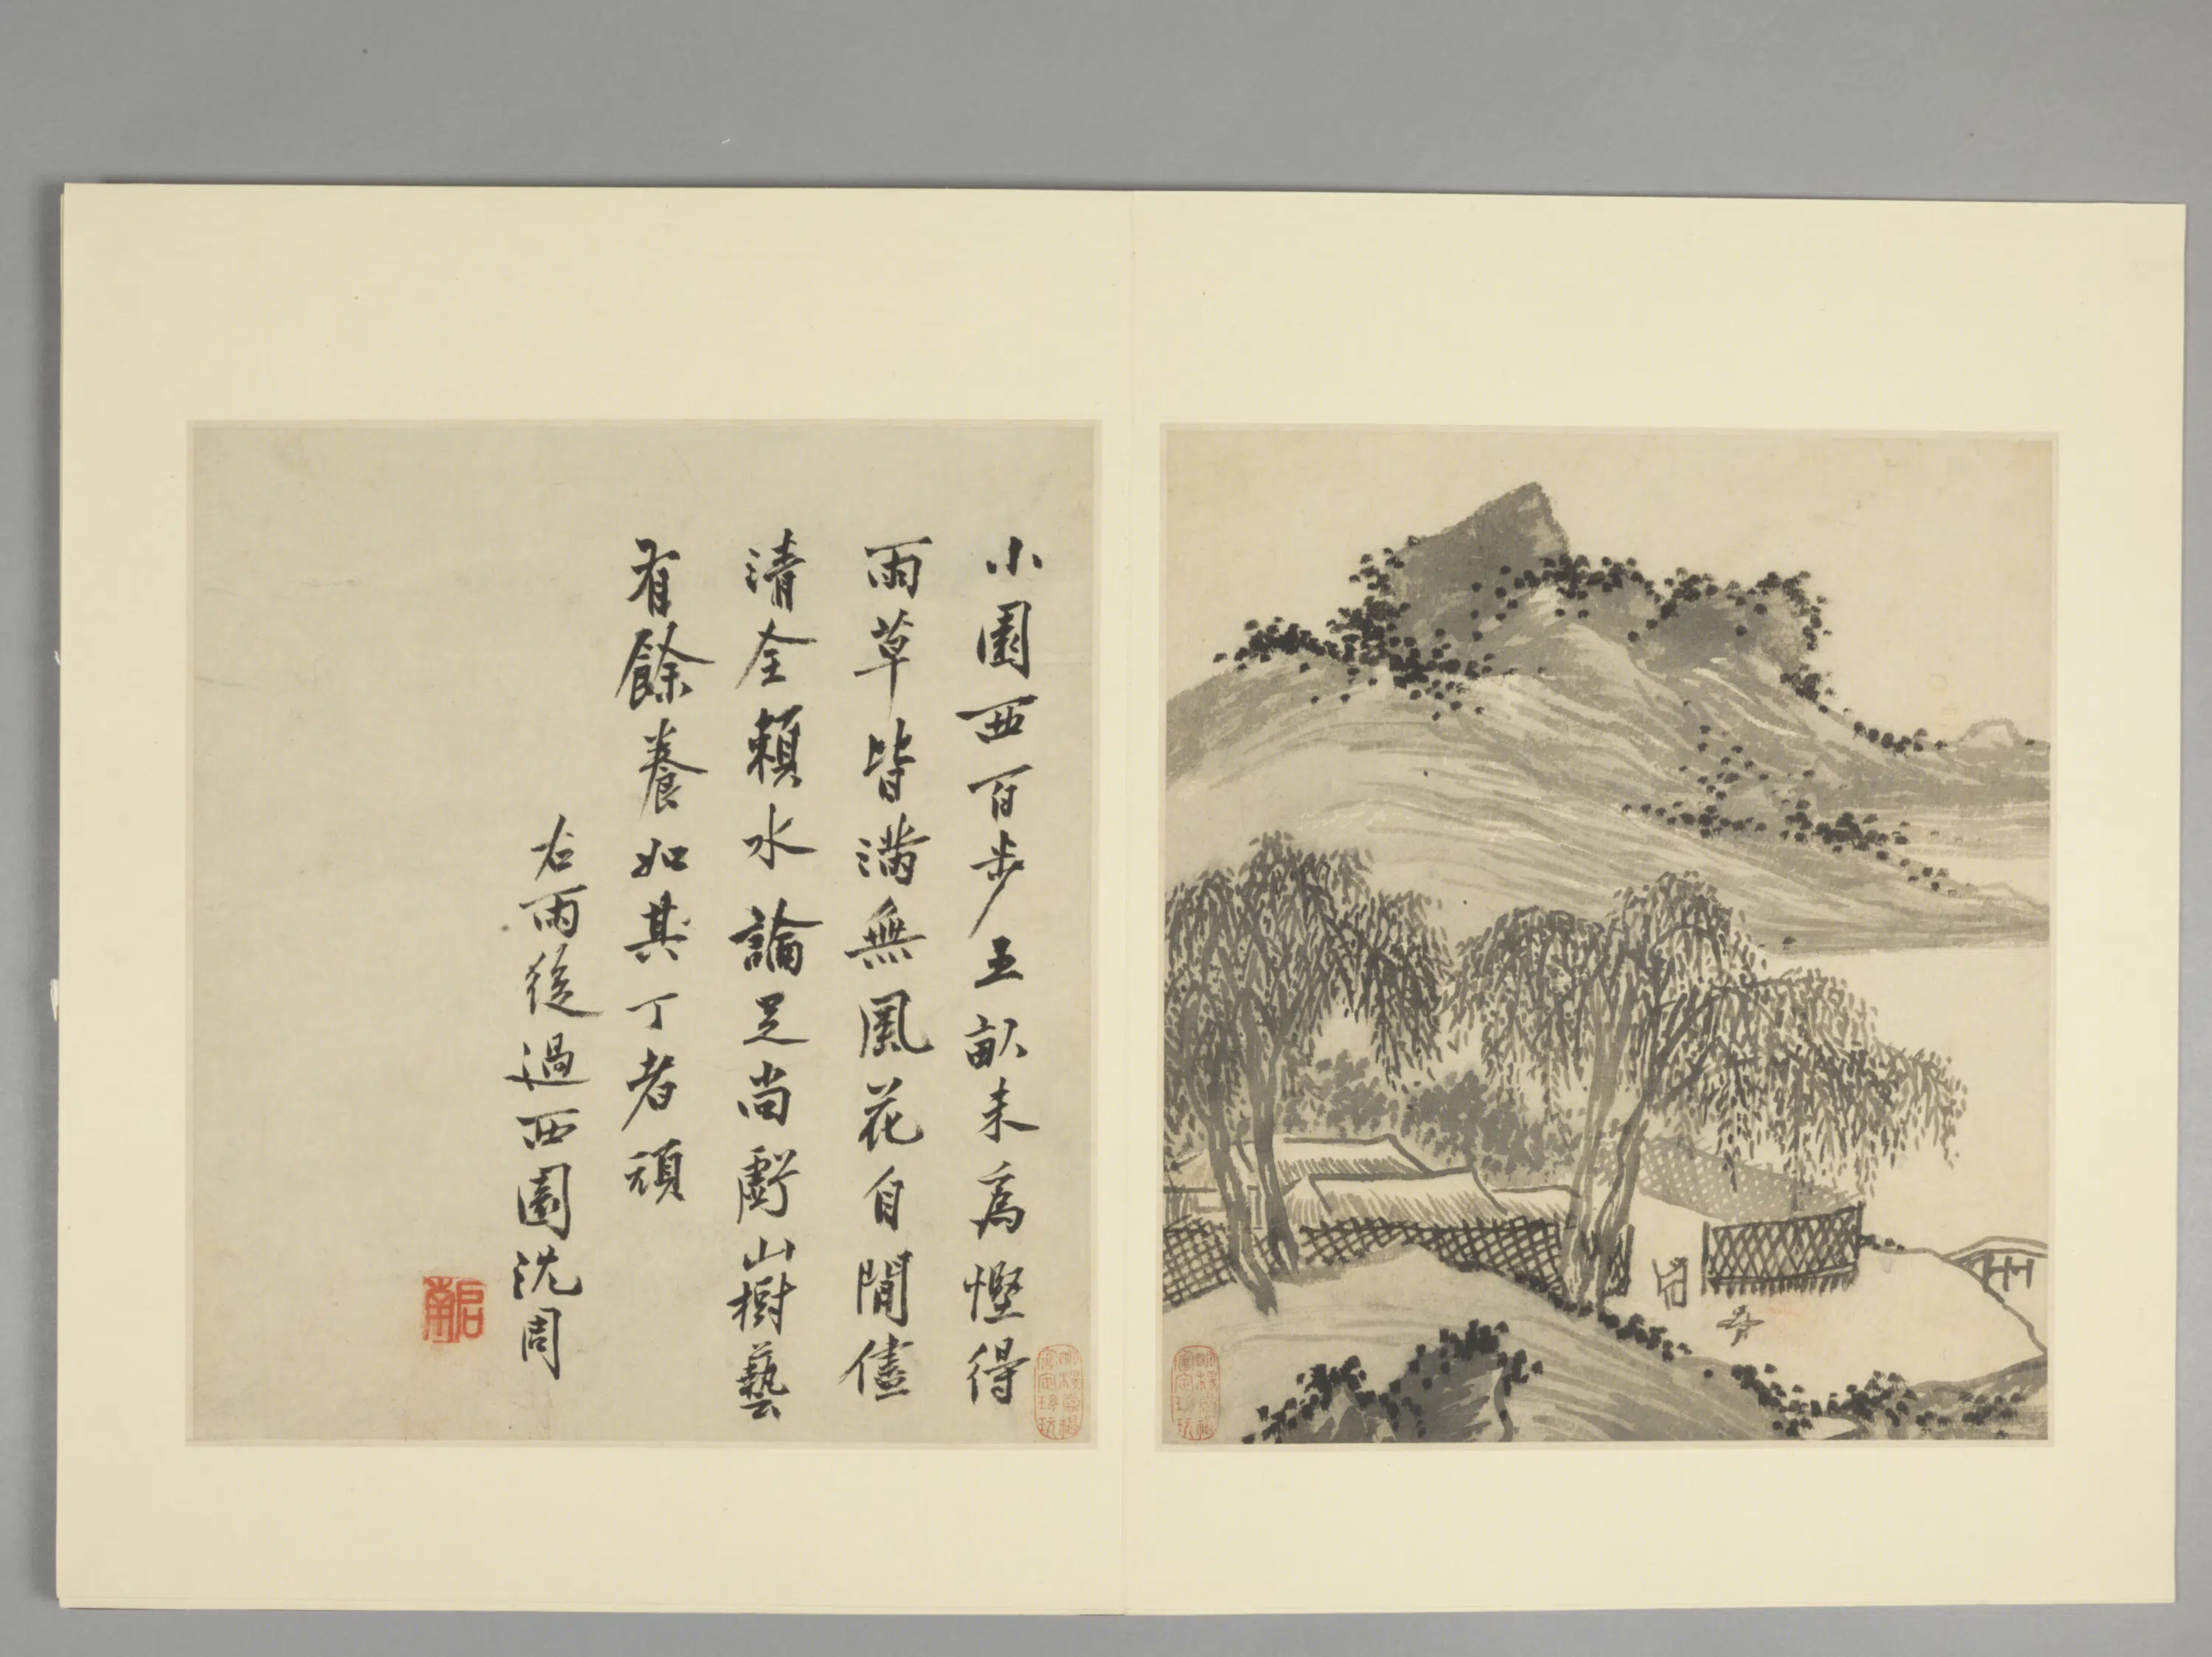 小園西百步五畝未為慳得
雨草皆滿無風花自閒儘
清全賴水論足尚虧山樹藝
有餘養如其丁者頑
右雨後過西園沈周
啟南